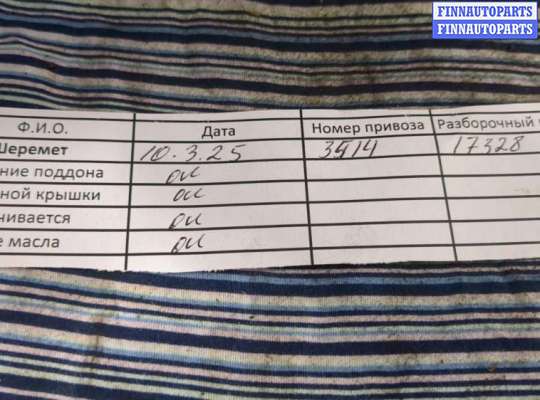 FINNAUTOPARTS
FINNAUTOPARTS
Ф.И.О. Дата Номер привоза Разборочный
Шеремет 10.3.25 3914 17328
ние поддона ок
ной крышки ок
чивается ок
е масла ок